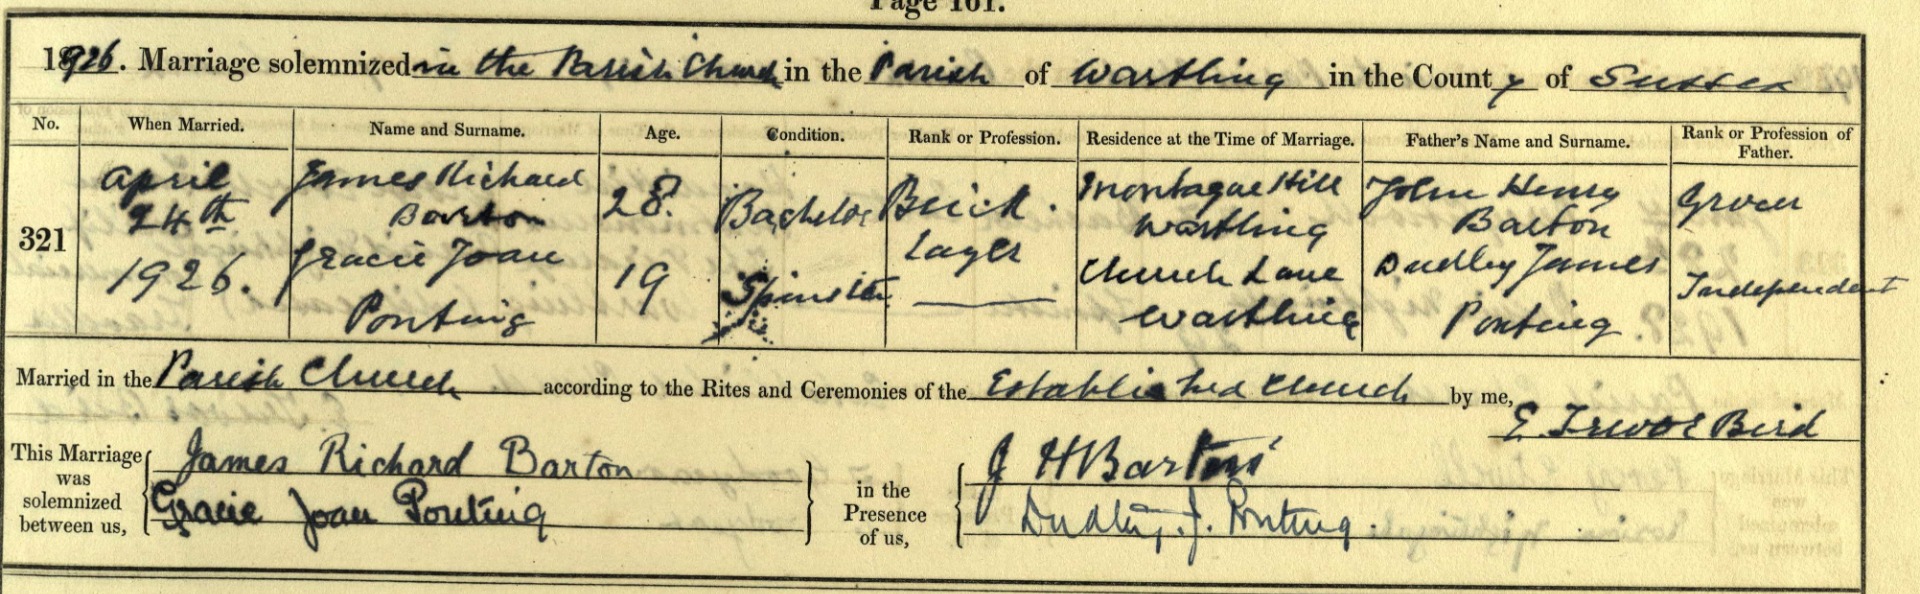 Page 161.
1926. Marriage solemnized in the Parish Church in the Parish of Wartling in the County of Sussex
No. When Married. Name and Surname. Age. Condition. Rank or Profession. Residence at the Time of Marriage. Father's Name and Surname. Rank or Profession of Father.
321
April 24th 1926.
James Richard Barton 28. Bachelor Brick. Layer Montague Hill Wartling John Henry Barton Grocer
Gracie Joan Ponting 19 Spinster Church Lane Wartling Dudley James Ponting Independent
Married in the Parish Church according to the Rites and Ceremonies of the Established Church by me,
E. Trevor Bird
This Marriage was solemnized between us, James Richard Barton in the Presence of us, J H Barton
Gracie Joan Ponting Dudley. J. Ponting.